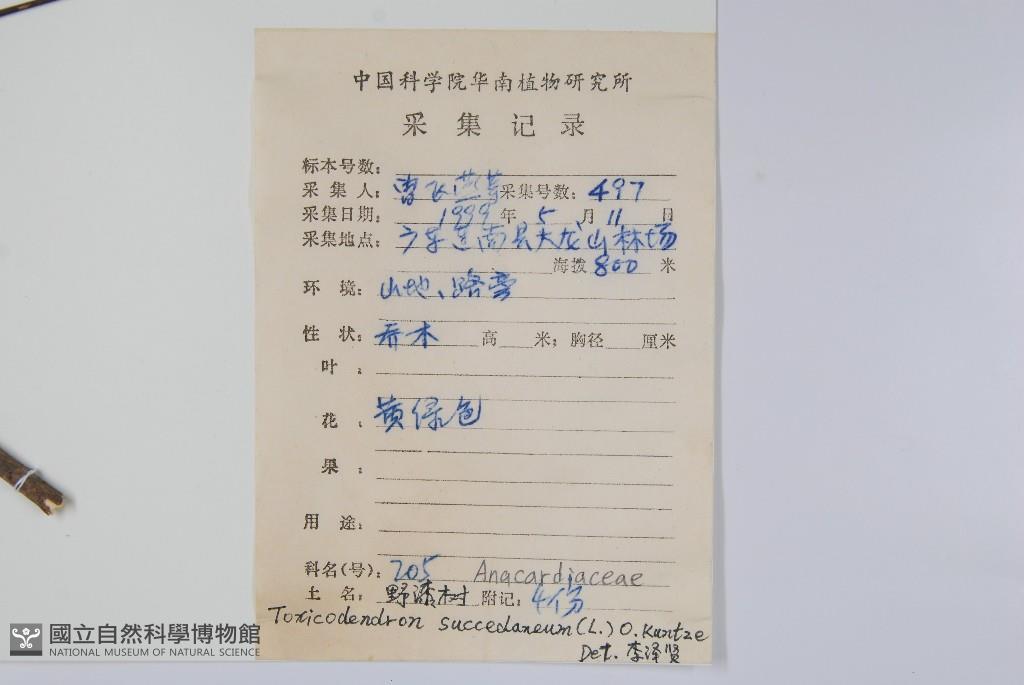 中国科学院华南植物研究所
采集记录
标本号数:
采集人: 曹飞燕等 采集号数: 497
采集日期: 1999 年 5 月 11 日
采集地点: 广东连南县大龙山林场
海拨 800 米
环境: 山地、路旁
性状: 乔木 高 米; 胸径 厘米
叶:
花: 黄绿色
果:
用途:
科名(号): 205 Anacardiaceae
土名: 野漆树 附记: 4份
Toxicodendron succedaneum (L.) O. Kuntze
Det. 李泽贤
國立自然科學博物館
NATIONAL MUSEUM OF NATURAL SCIENCE